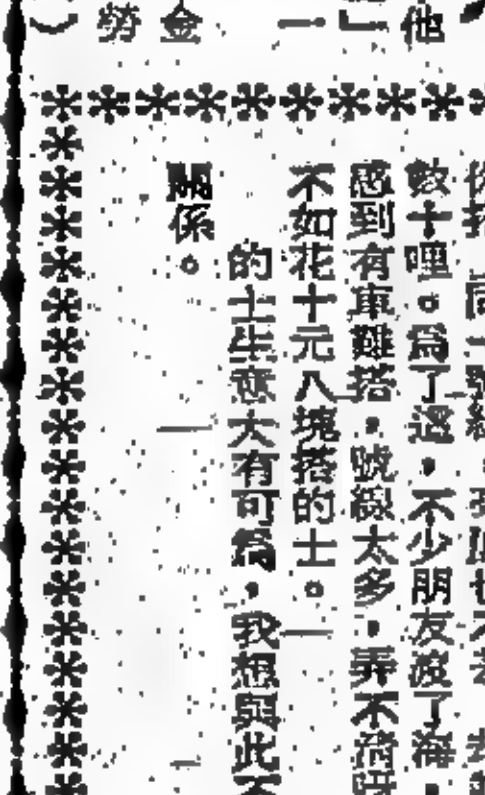 他
」一
金
勞
）
同一號線，
數十哩。爲了這，不少朋友渡了海，
感到有車難搭，號線太多，弄不清
不如花十元八塊搭的士。
的士生意大有可爲，我想與此不
關係。